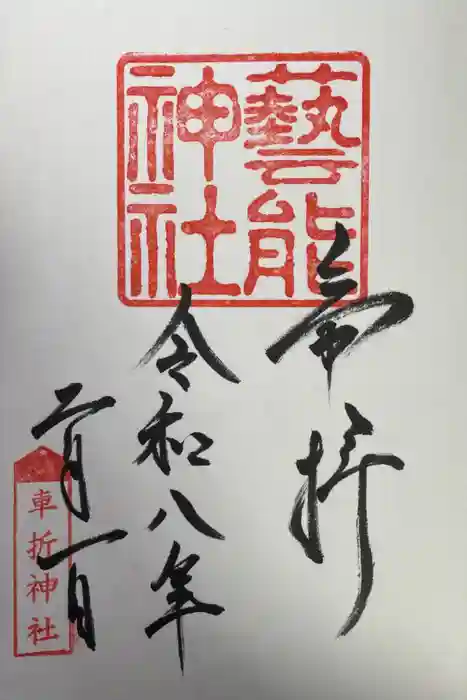 藝能
神社
奉拝
令和八年
二月一日
車折神社